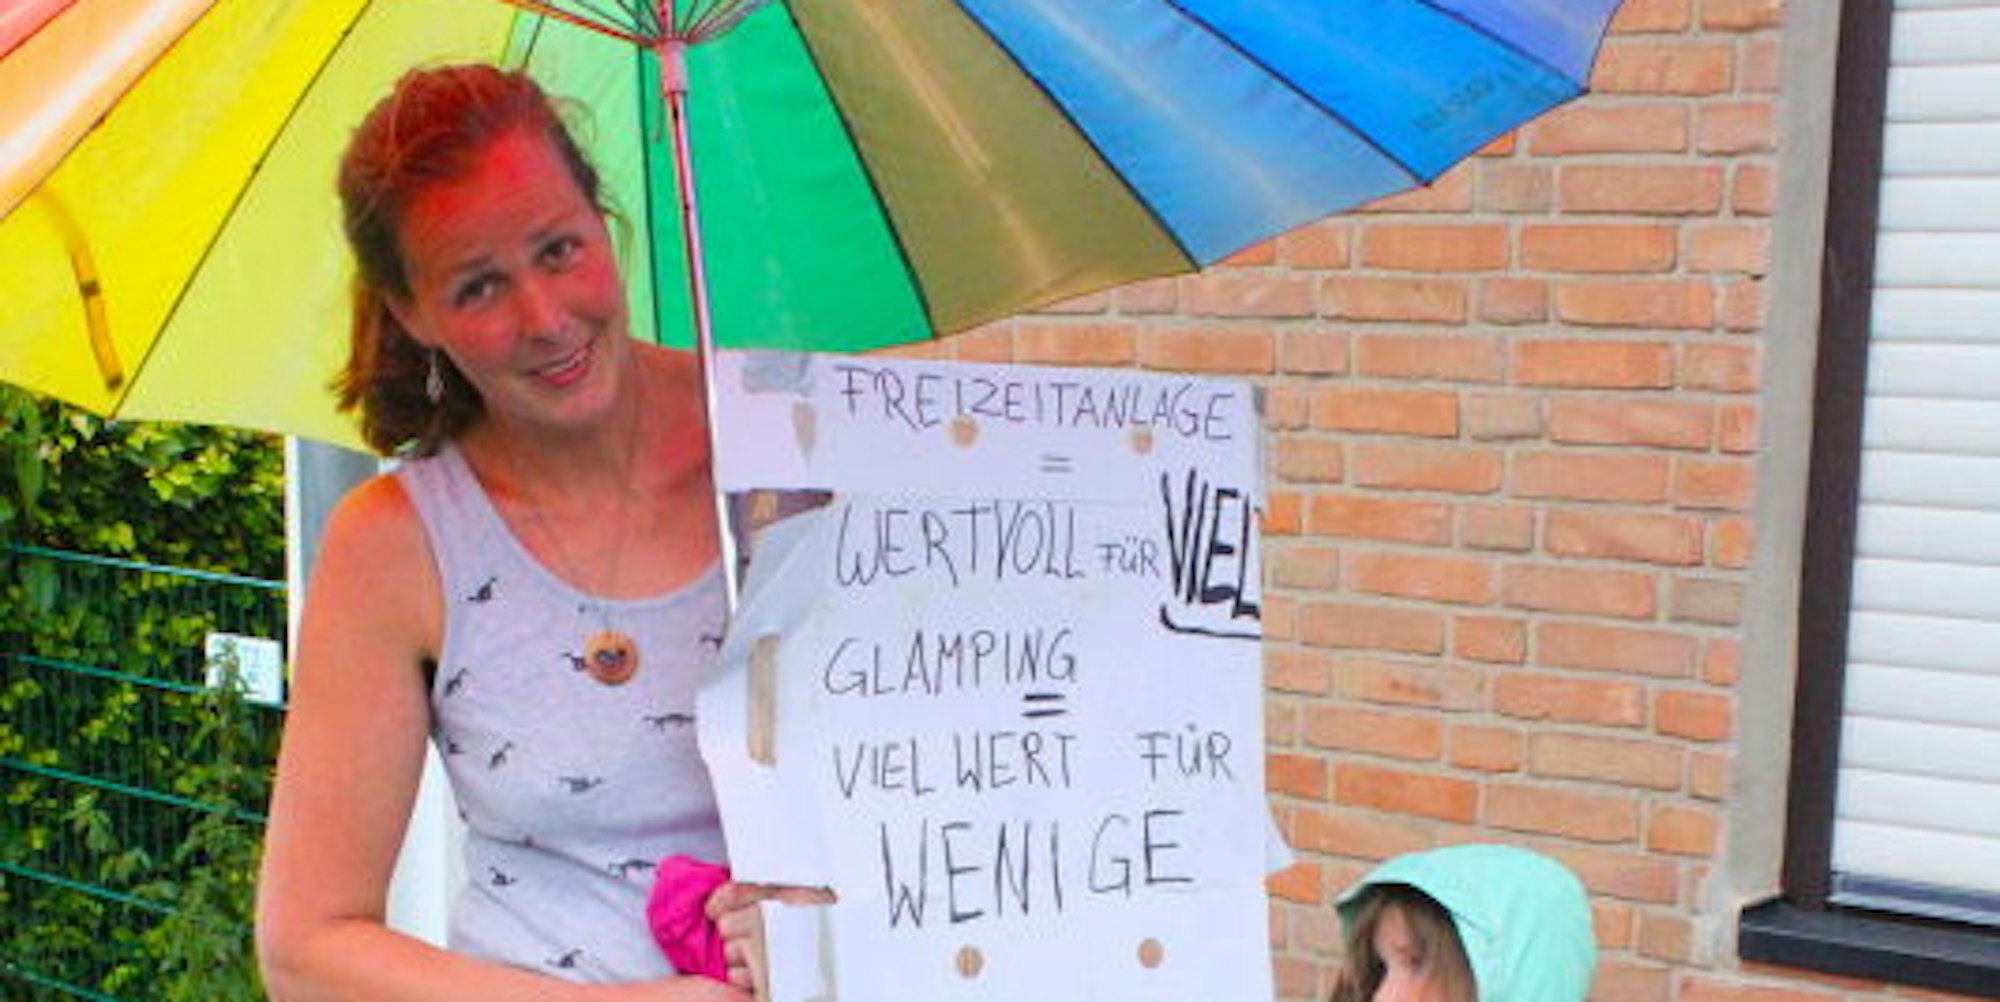 FREIZEITANLAGE
=
WERTVOLL FÜR VIEL
GLAMPING
=
VIEL WERT FÜR
WENIGE